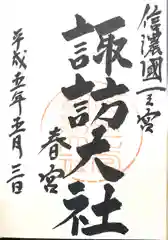 信濃國一宮
諏訪大社
春宮
平成五年五月三日